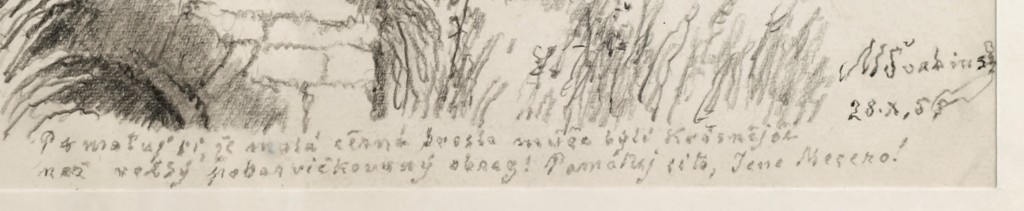 MŠvabinský
28.X.57
Pamatuj si, že malá černá kresba může býti krásnější
než veliký pobarvičkovaný obraz! Pamatuj si to, Jene Mecero!